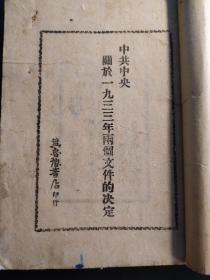 中共中央
關於一九三三年兩個文件的决定
冀魯豫書店印行